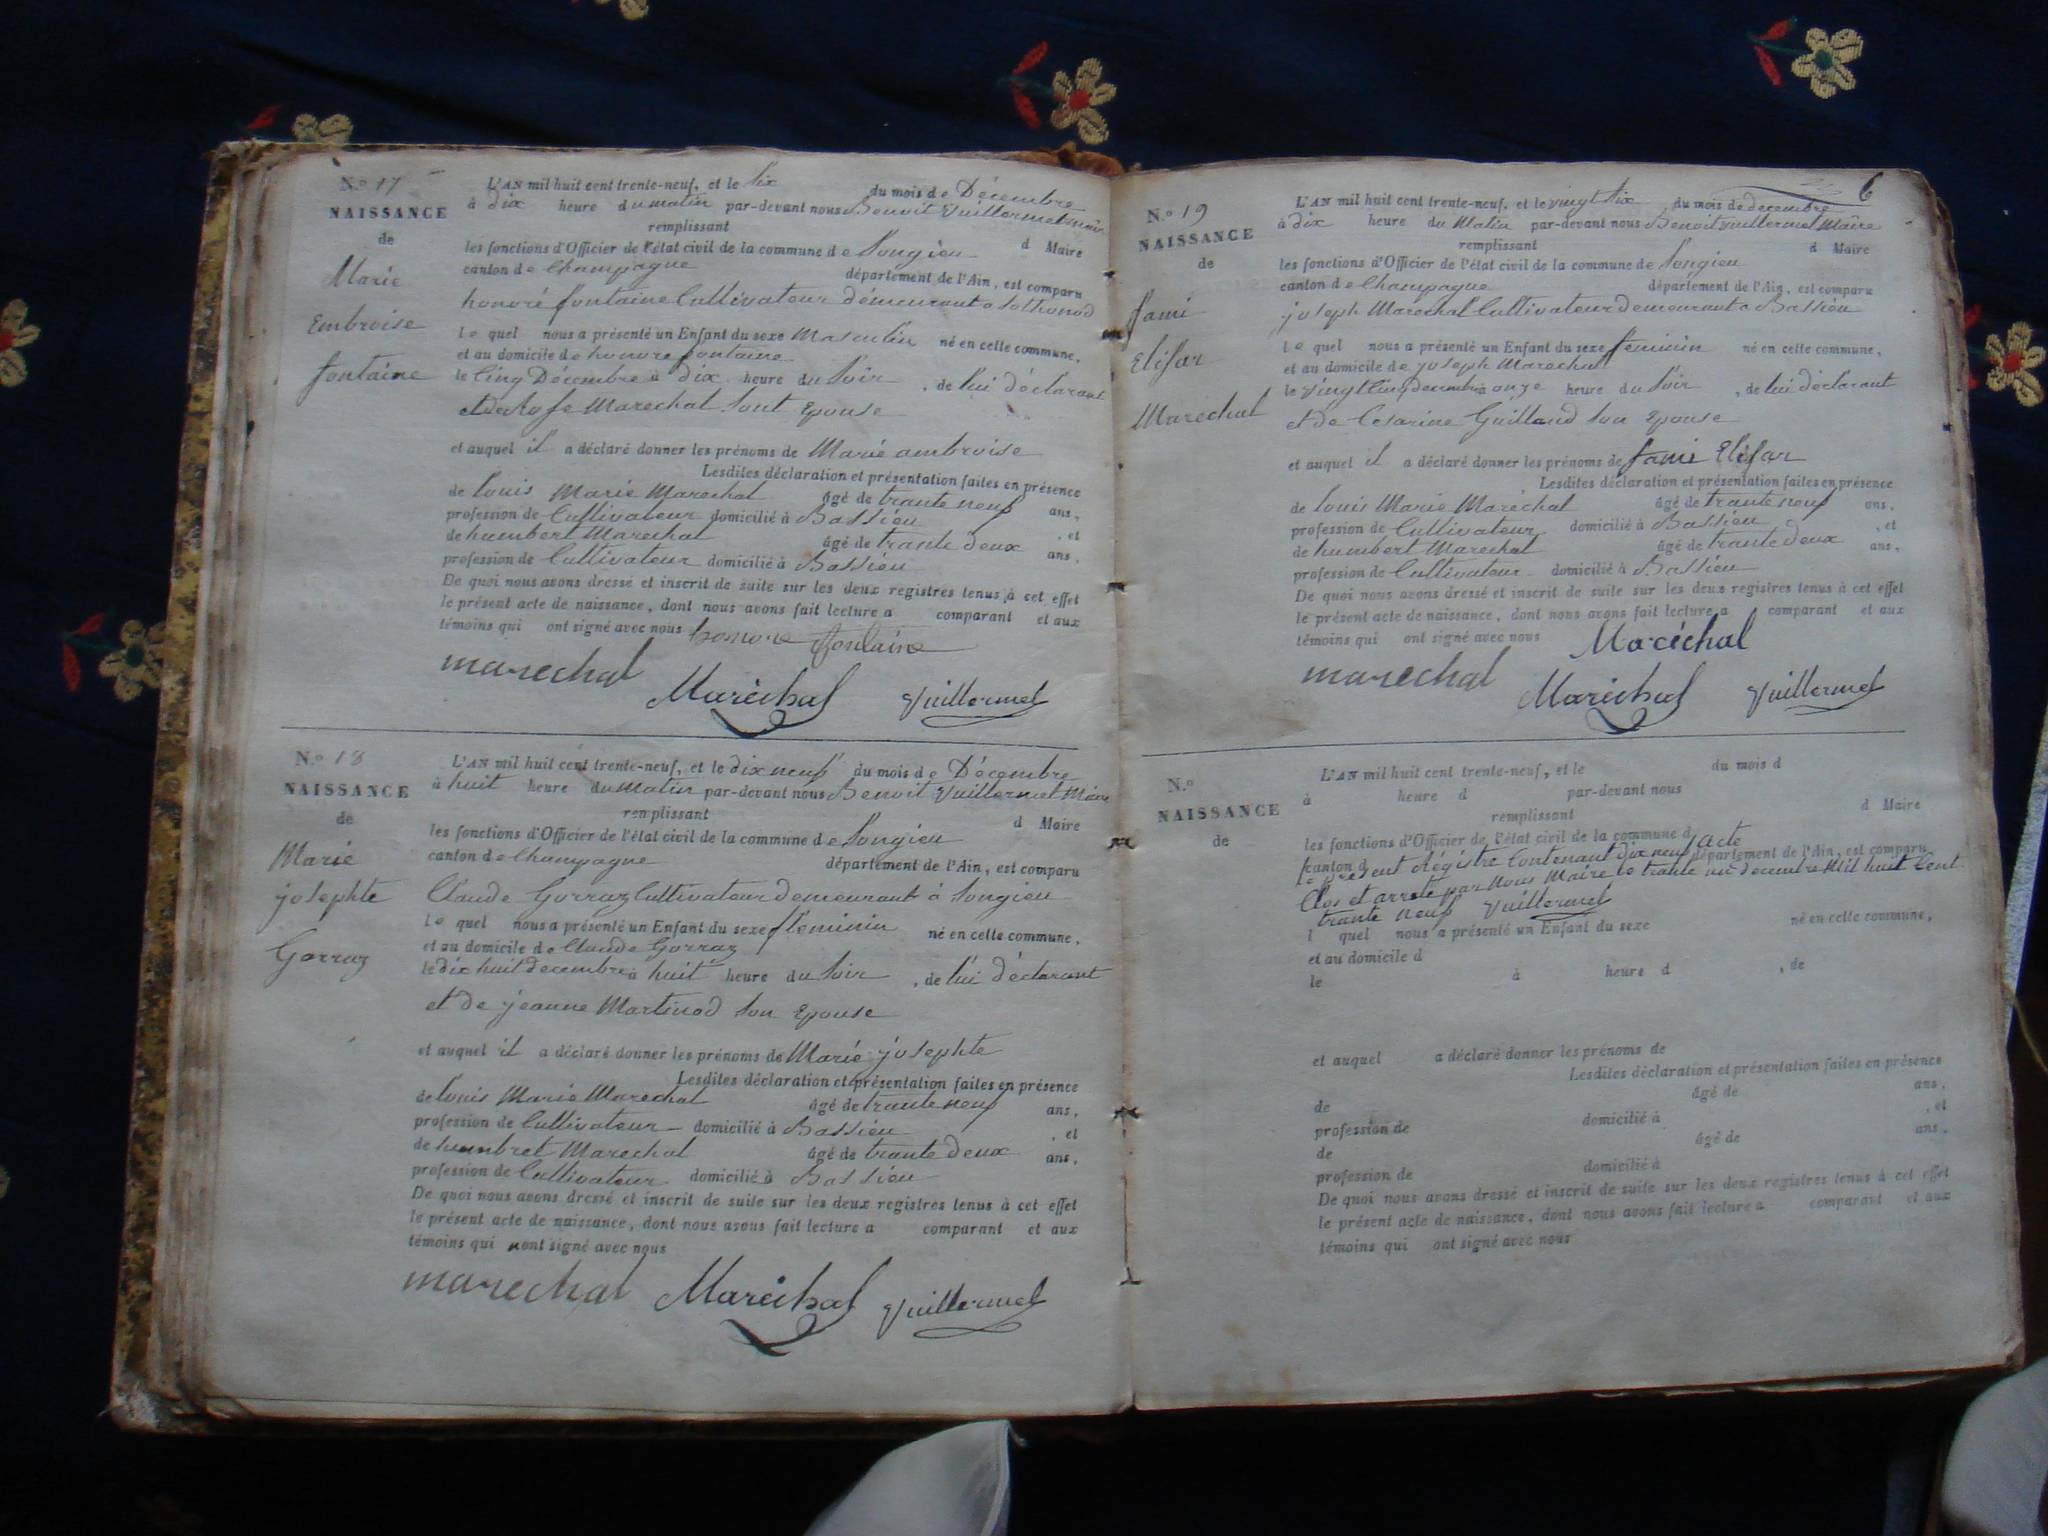 N.o 17
NAISSANCE
de
Marie
Embroise
fontaine
L'AN mil huit cent trente-neuf, et le Six du mois de Décembre
à dix heure du matin par-devant nous Benoit Vuillermet Maire
remplissant
les fonctions d'Officier de l'état civil de la commune de Songieu d Maire
canton de Champagne département de l'Ain, est comparu
honoré fontaine Cultivateur démeurant a Sothonod
le quel nous a présenté un Enfant du sexe Masculin né en cette commune,
et au domicile de honore fontaine
le Cinq Décembre à dix heure du Soir , de lui déclarant
et de Rose Marechal Sont Epouse
et auquel il a déclaré donner les prénoms de Marie ambroise
Lesdites déclaration et présentation faites en présence
de Louis Marie Marechal âgé de trante neuf ans,
profession de Cultivateur domicilié à Bassieu , et
de humbert Marechal âgé de trante deux ans,
profession de Cultivateur domicilié à Bassieu
De quoi nous avons dressé et inscrit de suite sur les deux registres tenus à cet effet
le présent acte de naissance, dont nous avons fait lecture a comparant et aux
témoins qui ont signé avec nous honore fontaine
marechal Maréchal Vuillermet
N.o 18
NAISSANCE
de
Marie
josephte
Gorraz
L'AN mil huit cent trente-neuf, et le dix neuf du mois de Décembre
à huit heure du Matin par-devant nous Benoit Vuillermet Maire
remplissant
les fonctions d'Officier de l'état civil de la commune de Songieu d Maire
canton de Champagne département de l'Ain, est comparu
Claude Gorraz Cultivateur demeurant à Songieu
le quel nous a présenté un Enfant du sexe feminin né en cette commune,
et au domicile de Claude Gorraz
le dix huit decembre à huit heure du Soir , de lui déclarant
et de jeanne Martinod Son Epouse
et auquel il a déclaré donner les prénoms de Marie josephte
Lesdites déclaration et présentation faites en présence
de Louis Marie Marechal âgé de trante neuf ans,
profession de Cultivateur domicilié à Bassieu , et
de humbret Marechal âgé de trante deux ans,
profession de Cultivateur domicilié à Bassieu
De quoi nous avons dressé et inscrit de suite sur les deux registres tenus à cet effet
le présent acte de naissance, dont nous avons fait lecture a comparant et aux
témoins qui nont signé avec nous
marechal Maréchal Vuillermet
6
N.o 19
NAISSANCE
de
fami
Elisar
Maréchal
L'AN mil huit cent trente-neuf, et le vingt Six du mois de decembre
à dix heure du Matin par-devant nous Benoit Vuillermet Maire
remplissant
les fonctions d'Officier de l'état civil de la commune de Songieu d Maire
canton de Champagne département de l'Ain, est comparu
joseph Marechal Cultivateur demeurant a Bassieu
le quel nous a présenté un Enfant du sexe feminin né en cette commune,
et au domicile de joseph Marechal
le vingt Cinq decembre à onze heure du Soir , de lui déclarant
et de Cesarine Guilland Son Epouse
et auquel il a déclaré donner les prénoms de fami Elisar
Lesdites déclaration et présentation faites en présence
de Louis Marie Maréchal âgé de trante neuf ans,
profession de Cultivateur domicilié à Bassieu , et
de humbert Marechal âgé de trante deux ans,
profession de Cultivateur domicilié à Bassieu
De quoi nous avons dressé et inscrit de suite sur les deux registres tenus à cet effet
le présent acte de naissance, dont nous avons fait lecture a comparant et aux
témoins qui ont signé avec nous Maréchal
marechal Maréchal Vuillermet
N.o
NAISSANCE
de
L'AN mil huit cent trente-neuf, et le du mois d
à heure d par-devant nous
remplissant
d Maire
les fonctions d'Officier de l'état civil de la commune d
canton d département de l'Ain, est comparu
Le présent Régistre Contenant dix neuf acte
Clos et arreté par Nous Maire le trante un decembre Mil huit Cent
trante neuf Vuillermet
l quel nous a présenté un Enfant du sexe né en cette commune,
et au domicile d
le à heure d , de
et auquel a déclaré donner les prénoms de
Lesdites déclaration et présentation faites en présence
de âgé de ans,
profession de domicilié à , et
de âgé de ans,
profession de domicilié à
De quoi nous avons dressé et inscrit de suite sur les deux registres tenus à cet effet
le présent acte de naissance, dont nous avons fait lecture a comparant et aux
témoins qui ont signé avec nous